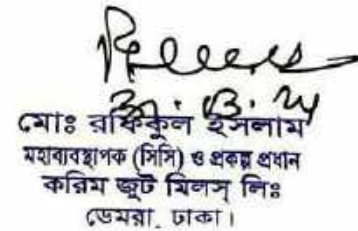 মোঃ রফিকুল ইসলাম
মহাব্যবস্থাপক (সিসি) ও প্রকল্প প্রধান
করিম জুট মিলস্ লিঃ
ডেমরা, ঢাকা।